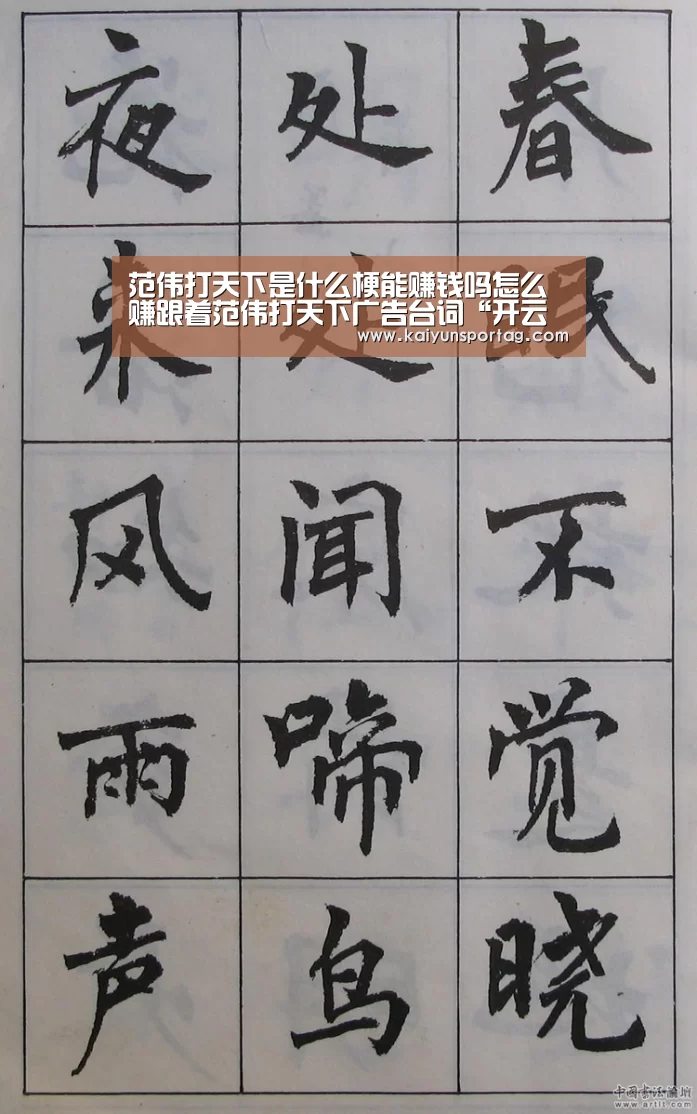 春眠不觉晓
处处闻啼鸟
夜来风雨声
范伟打天下是什么梗能赚钱吗怎么
赚跟着范伟打天下广告台词“开云
www.kaiyunsportag.com
中国书法论坛
www.artlt.com